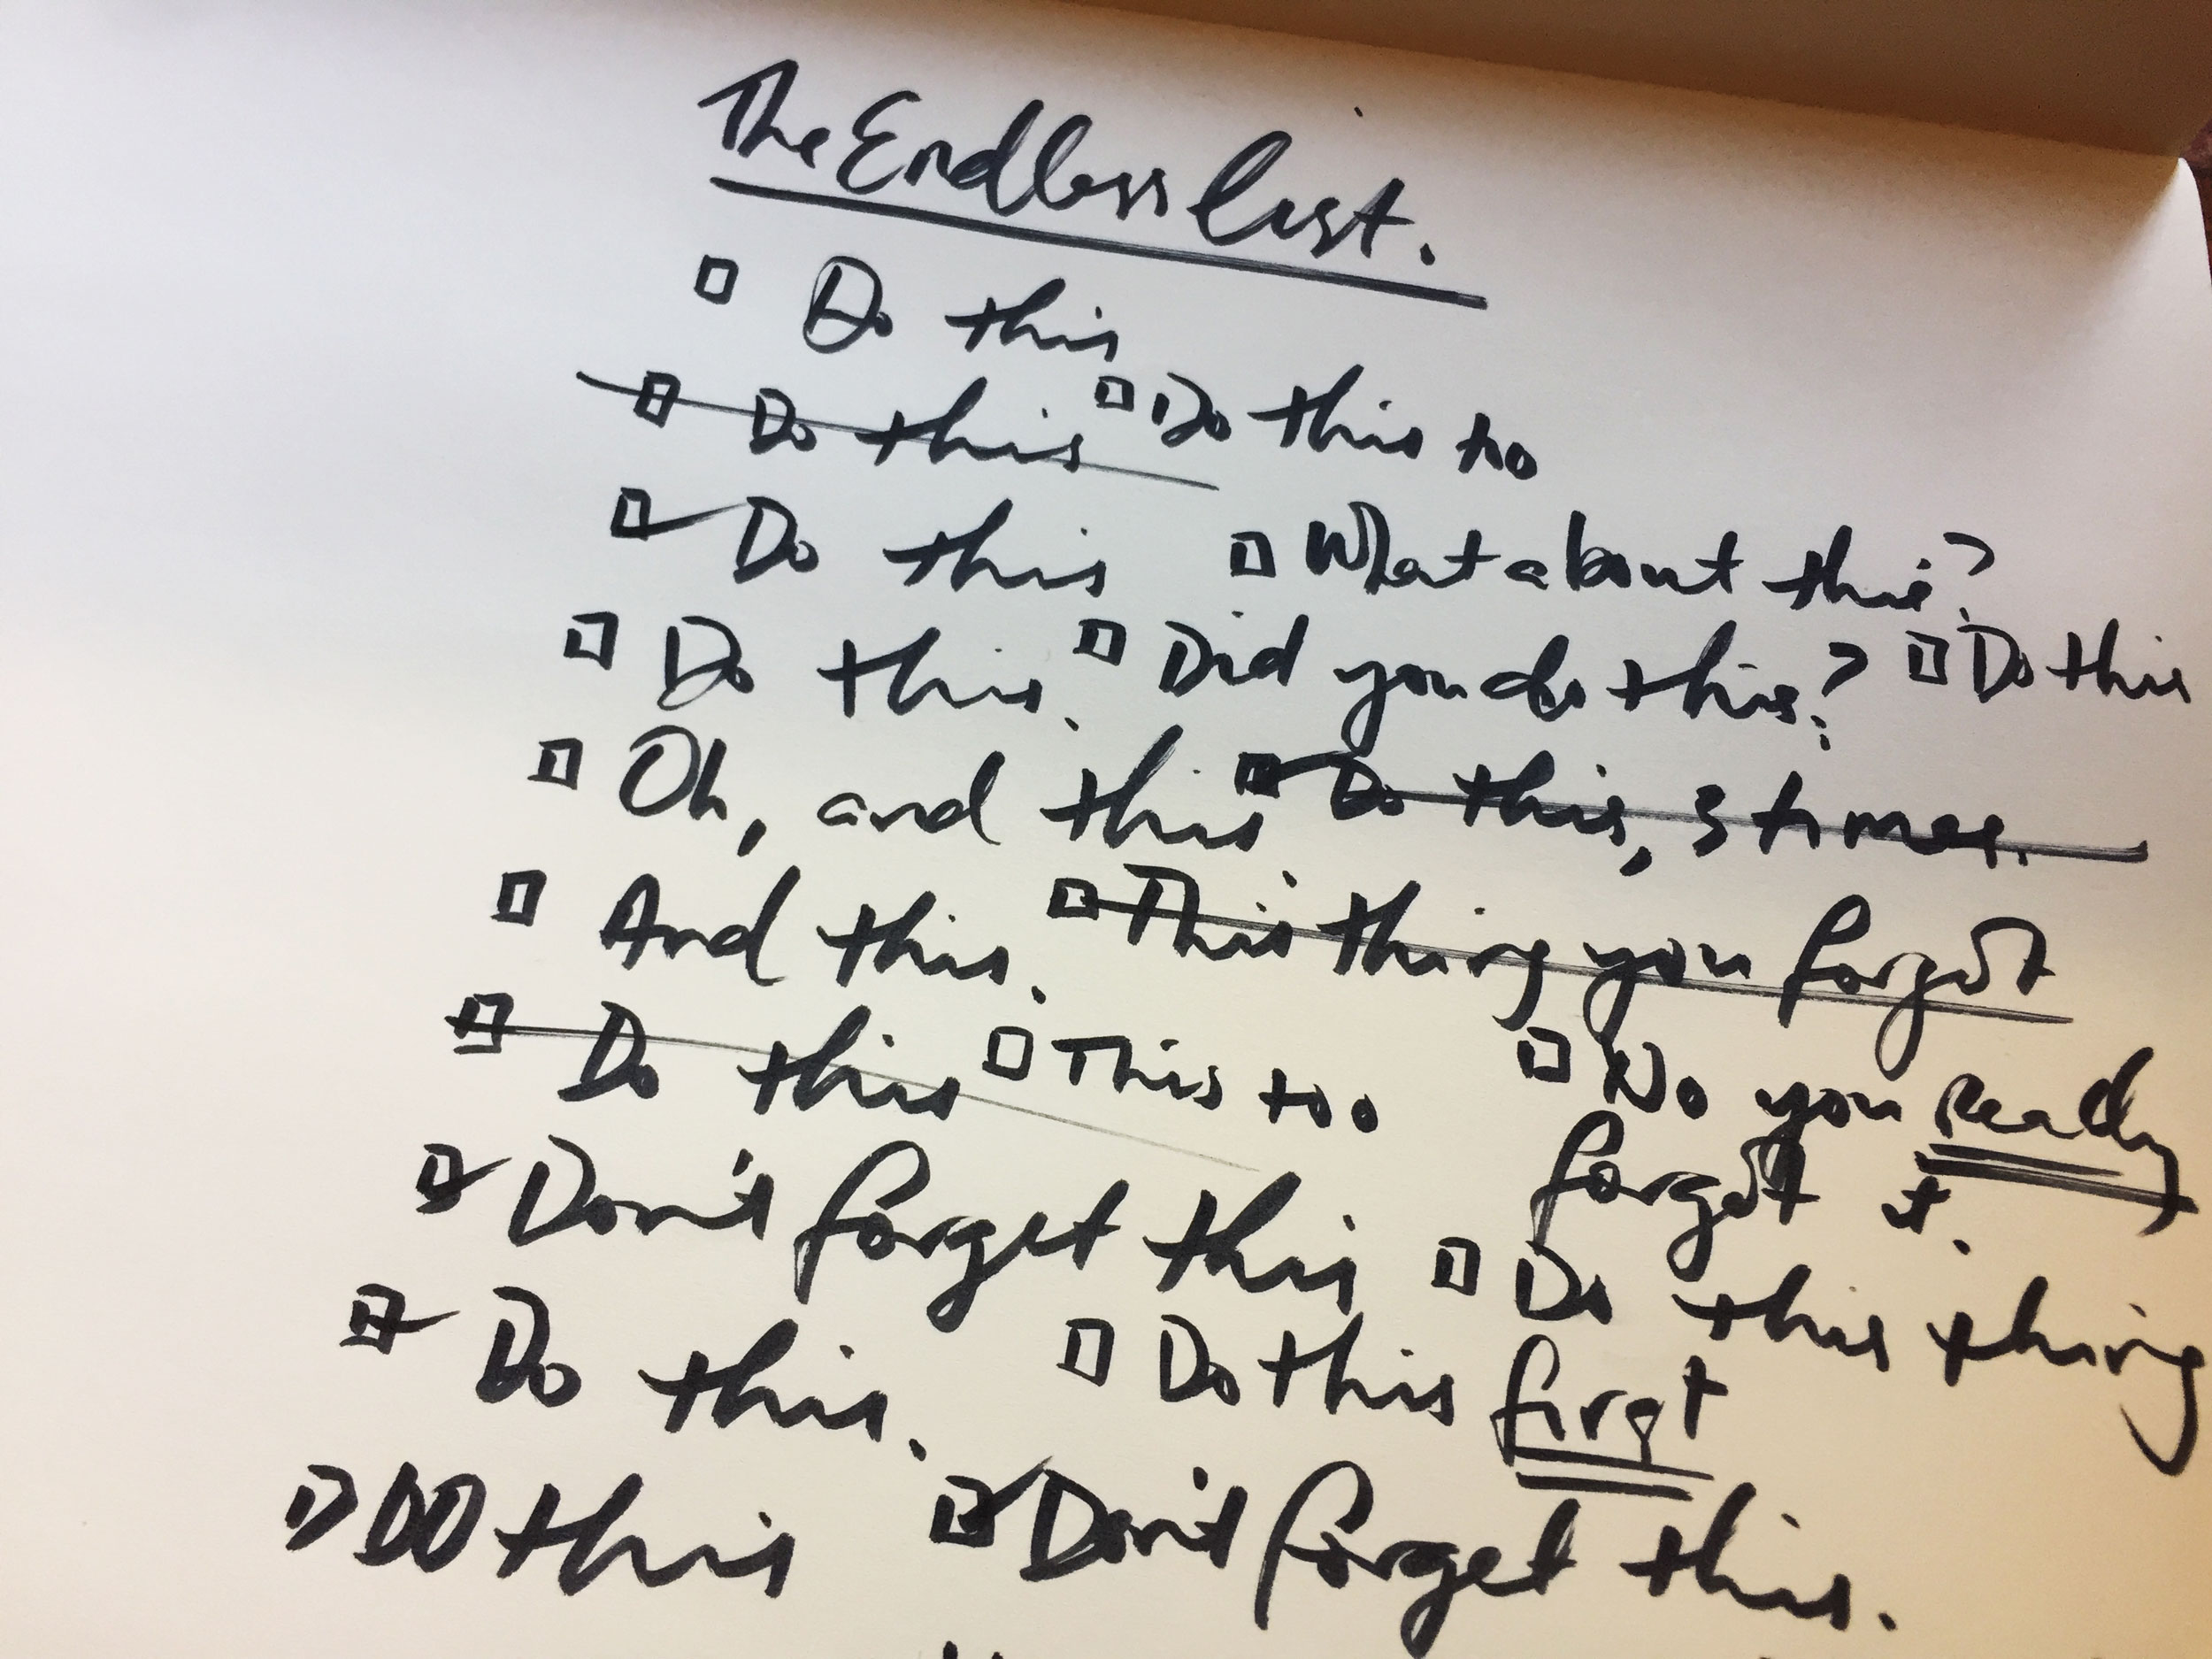 The Endless list.
☐ Do this
☐ Do this ☐ Do this too
☑ Do this ☐ What about this?
☐ Do this. ☐ Did you do this? ☐ Do this
☐ Oh, and this ☑ Do this, 3 times.
☐ And this. ☐ This thing you forgot
☐ Do this ☐ This too ☐ No you really
forgot it.
☑ Don't forget this ☐ Do this thing
☑ Do this. ☐ Do this first
☐ DO this ☑ Don't forget this.